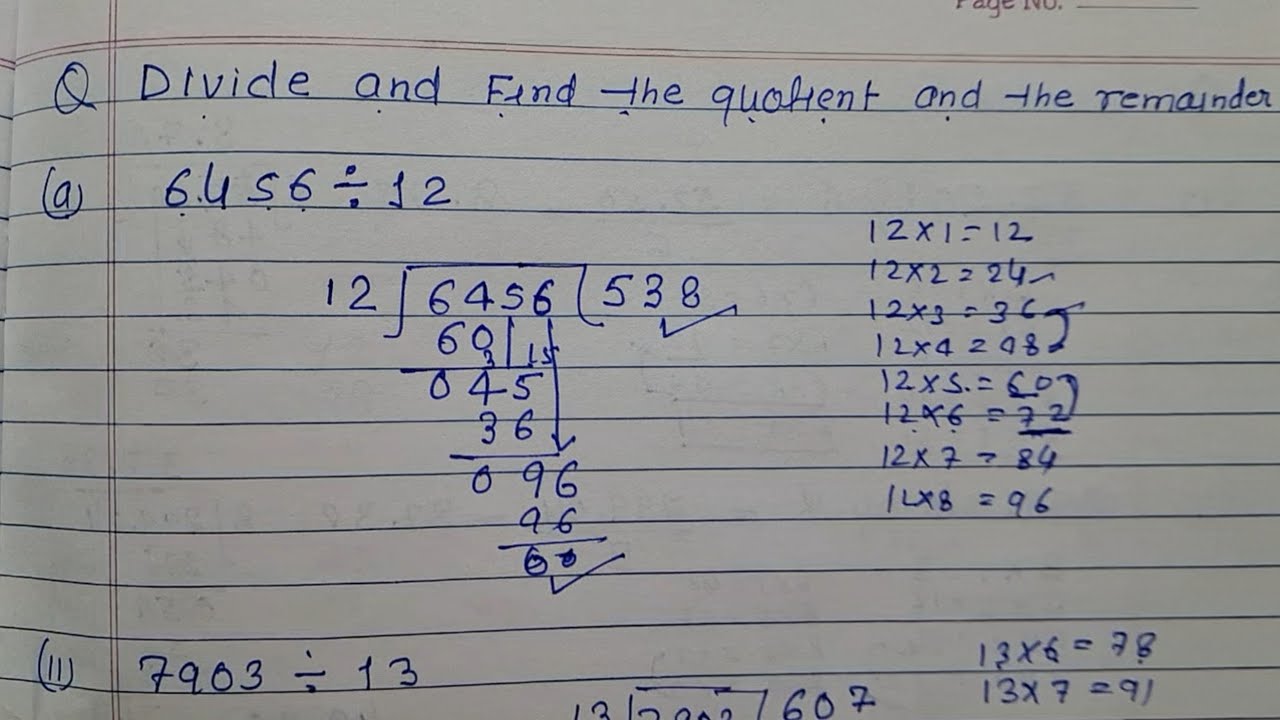 Page No.
Q Divide and Find the quotient and the remainder
(a) 6456 ÷ 12
12 × 1 = 12
12 × 2 = 24
12 6456 538
12 × 3 = 36
60
12 × 4 = 48
045
12 × 5 = 60
36
12 × 6 = 72
096
12 × 7 = 84
96
12 × 8 = 96
00
(II) 7903 ÷ 13
13 × 6 = 78
13 × 7 = 91
13 7903 607